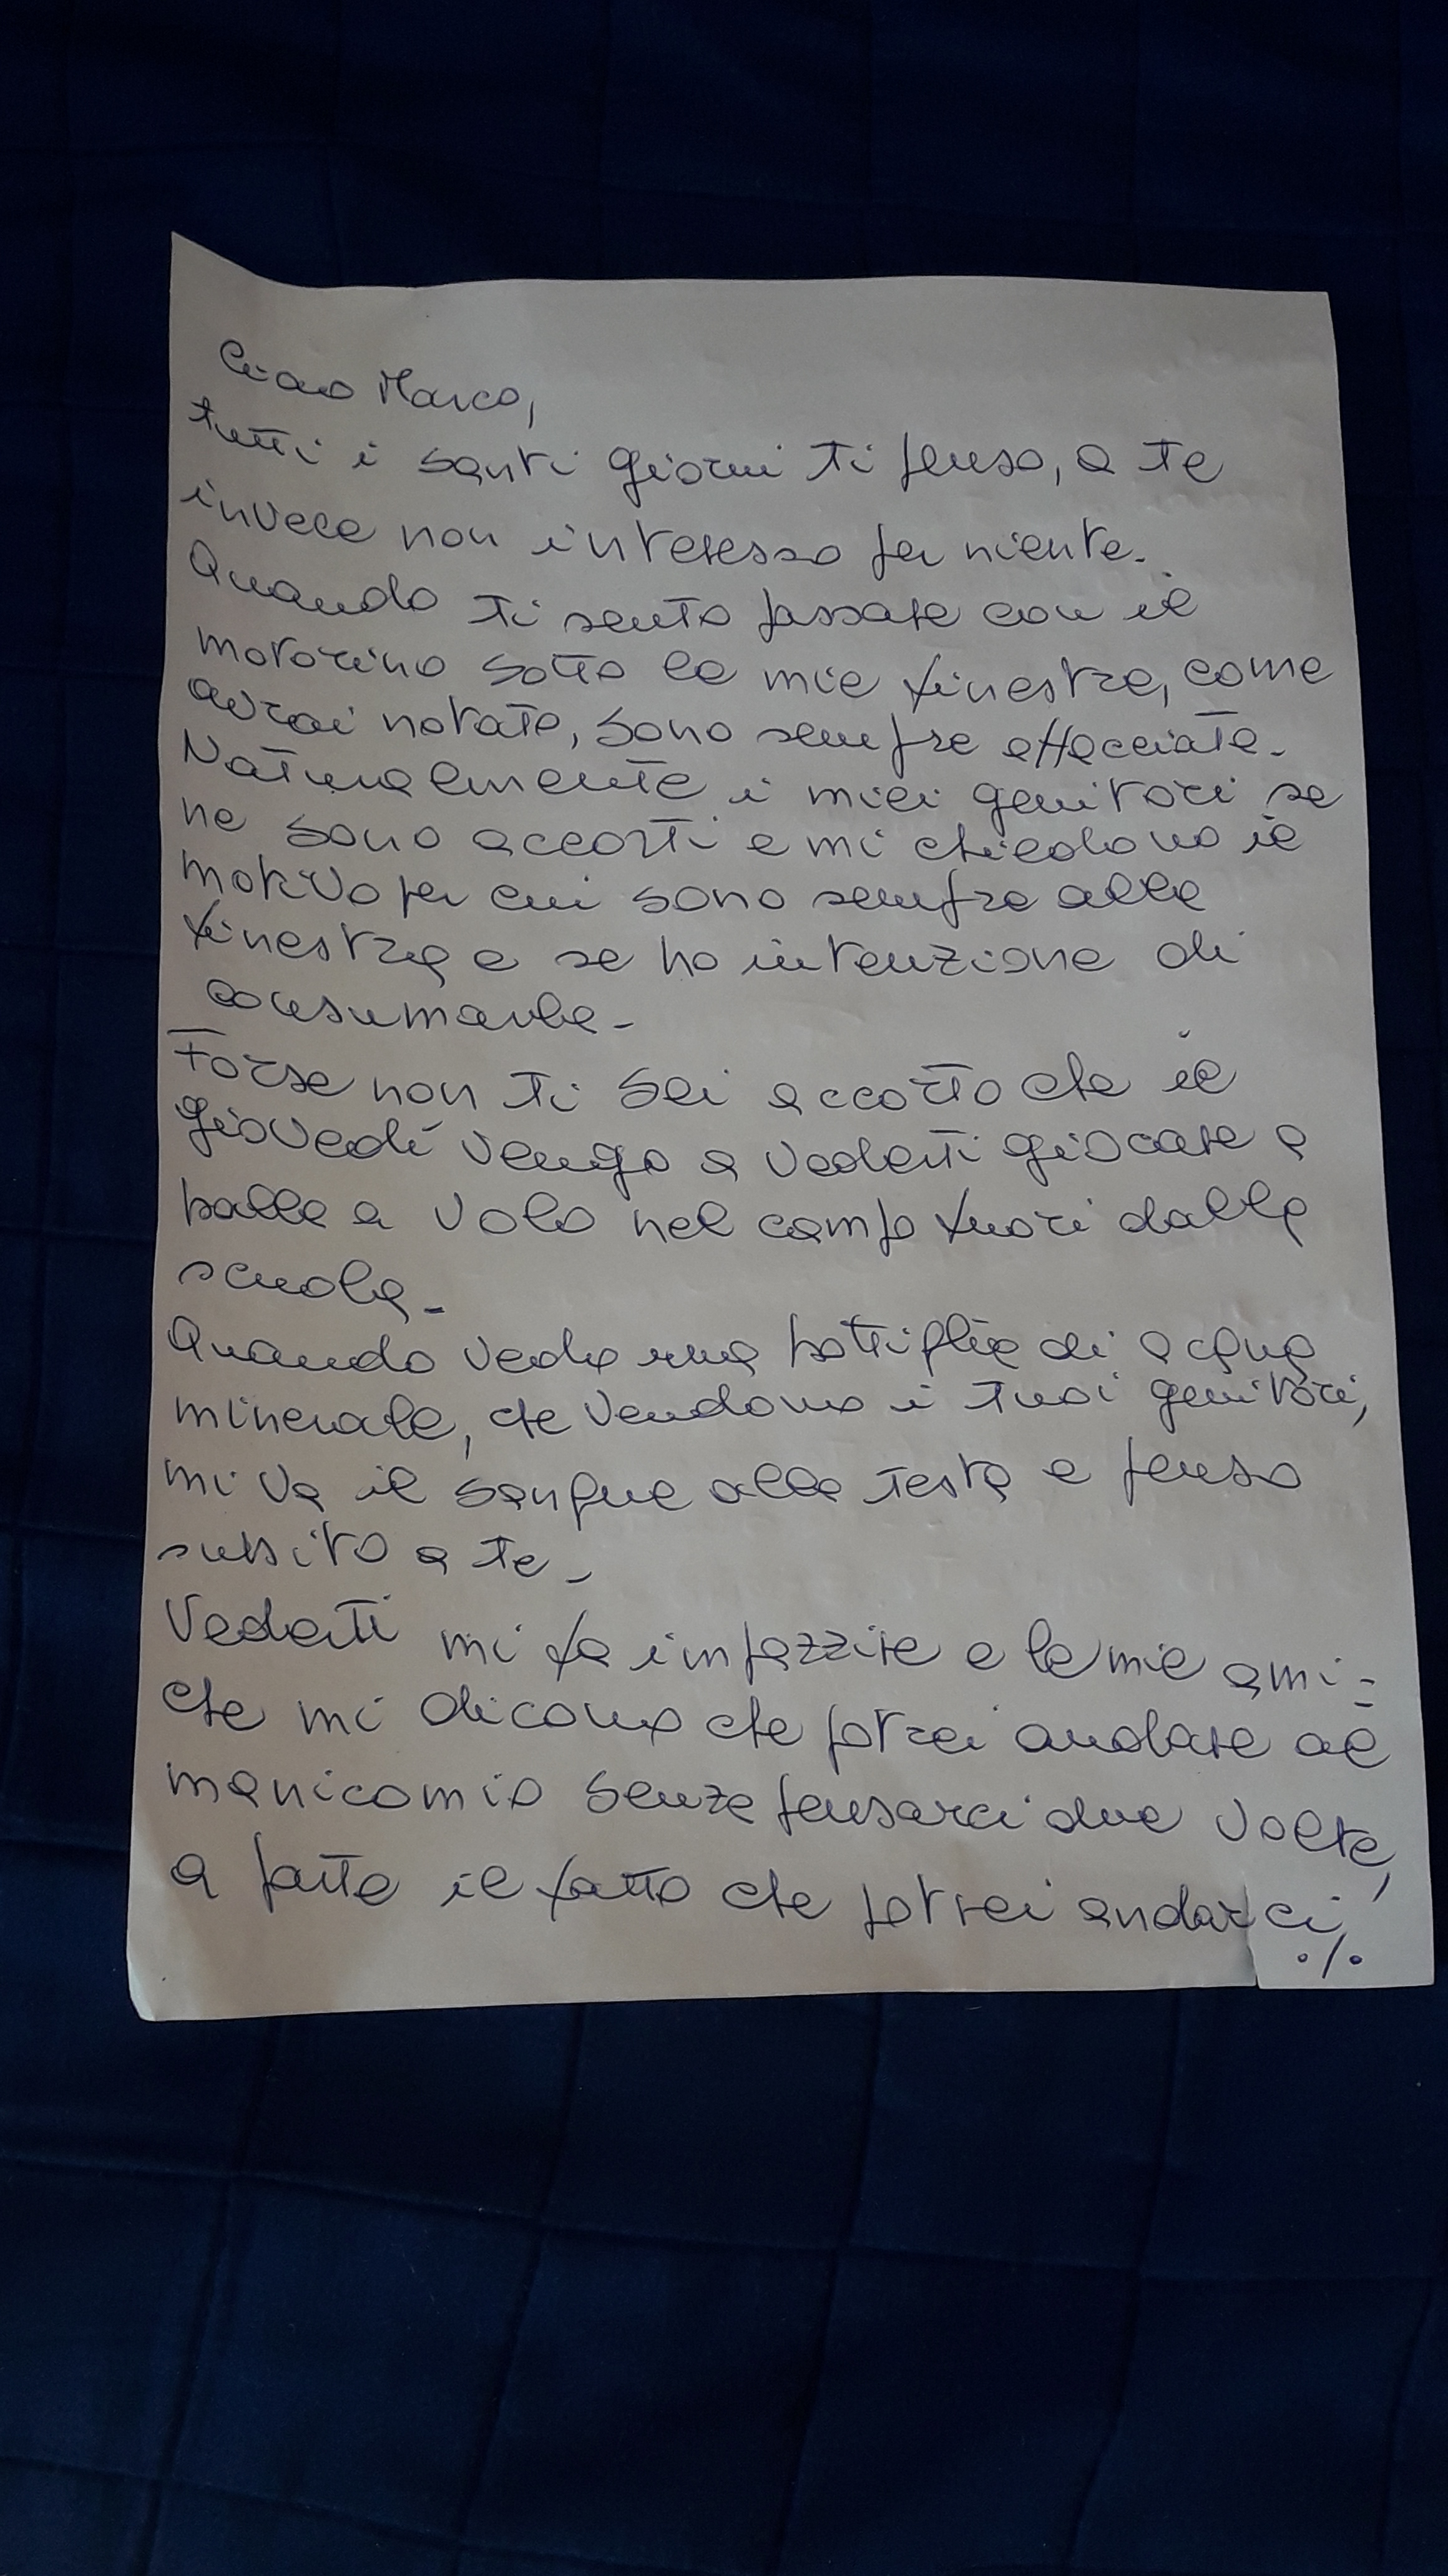 Ciao Marco,
tutti i santi giorni ti penso, a te
invece non interesso per niente.
Quando ti sento passare con il
motorino sotto la mia finestra, come
avrai notato, sono sempre affacciata.
Naturalmente i miei genitori se
ne sono accorti e mi chiedono il
motivo per cui sono sempre alla
finestra e se ho intenzione di
consumarla.
Forse non ti sei accorto che il
giovedì vengo a vederti giocare a
palla a volo nel campo fuori dalla
scuola.
Quando vedo una bottiglia di acqua
minerale, che vendono i tuoi genitori,
mi va il sangue alla testa e penso
subito a te.
Vederti mi fa impazzire e le mie ami=
che mi dicono che potrei andare al
manicomio senza pensarci due volte,
a parte il fatto che potrei andarci
./.